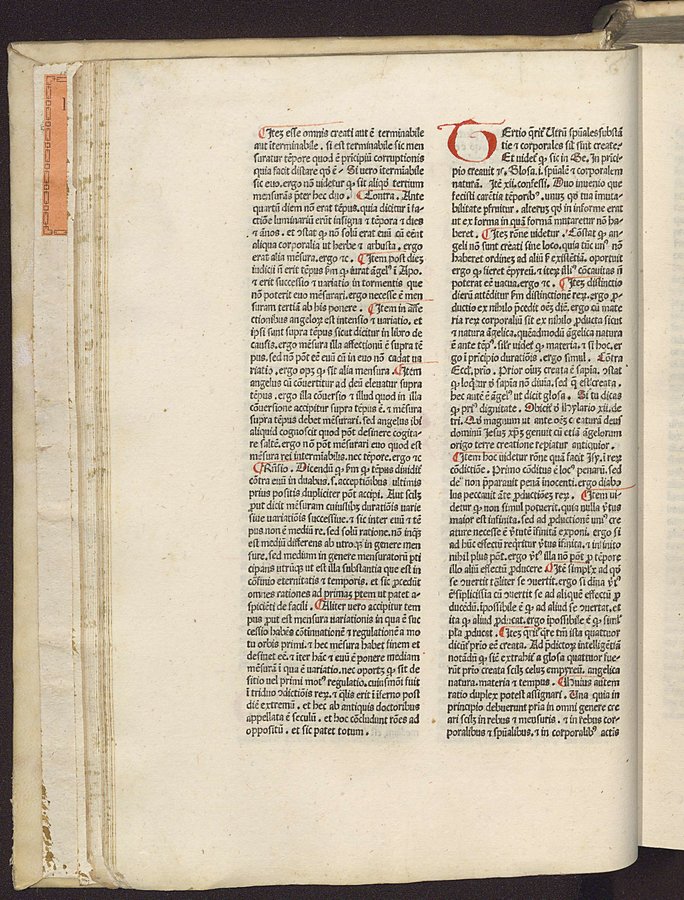 Itez esse omnis creati aut ē terminabile
aut īterminabile . si est terminabile sic men
suratur tēpore quod ē prīcipiū corruptionis
quia facit distare qđ ē . Si vero ītermīabile
sic euo. ergo nō uidetur ꝙ sit aliqđ tertium
mensurās p̄ter hec duo . Contra . Ante
quartū diem nō erat tēpus. quia dicitur ī ia
ctiōne luminariū erūt in signa ⁊ tēpora ⁊ dies
⁊ ānos . et ꝯstat ꝙ nō solū erat euū cū eēnt
aliqua corporalia ut herbe ⁊ arbusta . ergo
erat alia mēsura. ergo ⁊c . Item post diez
iudicii ñ erit tēpus s̄m ꝙ iurat āgelꝰ ī Apo.
⁊ erit successio ⁊ uariatio in tormentis que
nō poterit euo mēsurari. ergo necesse ē men
suram tertiā ab his ponere . Item in affe
ctionibus angeloꝝ est intensio ⁊ uariatio. et
ip̄i sunt supra tēpus sicut dicitur in libro de
causis. ergo mēsura illa affectionū ē supra tē
pus. sed nō pōt eē euū cū in euo nō cadat ua
riatio . ergo opꝫ ꝙ sit alia mensura . Item
angelus cū cōuertitur ad deū eleuatur supra
tēpus . ergo illa cōuersio ⁊ illud quod in illa
cōuersione accipitur supra tēpus ē. ⁊ mēsura
supra tēpus debet mēsurari. sed angelus ibi
aliquid cognoscit quod pōt desinere cogita-
re saltē. ergo nō pōt mēsurari euo quod est
mēsura rei intermīabilis. nec tēpore. ergo ⁊c
Rñsio . Dicendū ꝙ s̄m ꝙ tēpus diuidit̄
cōtra euū in duabus. s. acceptiōibus ultimis
prius positis dupliciter pōt accipi. Aut scilꝫ
ꝓut dicit mēsuram cuiuslibꝫ duratiōis uarie
siue uariatiōis successiue. ⁊ sic inter euū ⁊ tē
pus non ē mediū re. sed solū ratione. nō inqꝫ
est mediū differens ab utroqꝫ in genere men
sure. sed medium in genere mensuratorū pti
cipans utrūqꝫ ut est illa substantia que est in
cōfinio eternitatis ⁊ temporis. et sic ꝓcedūt
omnes rationes ad primaꝫ ptem ut patet a-
spiciēti de facili . Aliter uero accipitur tem
pus ꝓut est mensura uariationis in qua ē suc
cessio habēs cōtinuationē ⁊ regulationē a mo
tu orbis primi. ⁊ hec mēsura habet finem et
desinet eē. ⁊ īter hāc ⁊ euū ē ponere mediam
mēsurā ī qua ē uariatio. nec oportꝫ ꝙ sit de
sitio uel primi motꝰ regulatio. cuiusmōi fuit
ī triduo ꝯdictiōis reꝝ. ⁊ q̄lis erit ī īferno post
diē extremū . et hec ab antiquis doctoribus
appellata ē seculū . et hoc cōcludunt rōes ad
oppositū . et sic patet totum .
Tertio q̄rit̄ Utrū sp̄uales substā
tie ⁊ corporales sīt simul create.
Et uidet̄ ꝙ sic in Ge. In prīci-
pio creauit ⁊c. Glosa. i. sp̄ualē ⁊ corporalem
naturā. Itē xii. confessi. Duo inuenio que
fecisti carētia tēporibꝰ. unuꝫ qđ tua īmuta-
bilitate p̄fruitur . alterū qđ in informe erat
ut ex forma in quā formā mutaretur nō ha-
beret . Itez rōne uidetur . Cōstat ꝙ an-
geli nō sunt creati sine loco. quia tūc unꝰ nō
haberet ordinez ad aliū ꝑ exn̄tiā. oportuit
ergo ꝙ fieret ēpyreū. ⁊ iterꝫ illiꝰ cōcauitas ñ
poterat eē uacua. ergo ⁊c . Itez distinctio
dierū attēditur s̄m distinctionē reꝝ. ergo ꝓ-
ductio ex nihilo p̄cedit oēz diē. ergo cū mate
ria reꝝ corporaliū sit ex nihilo ꝓducta sicut
⁊ natura āgelica. quēadmodū āgelica natura
ē ante tēpꝰ. sil̄r uidet̄ ꝙ materia. ⁊ si hoc. er
go ī prīcipio duratiōis. ergo simul . Cōtra
Eccī. prio . Prior oīuꝫ creata ē sapīa. ꝯstat
ꝙ loqūr d̓ sapīa nō diuīa. sed q̄ est creata.
hec aūt ē āgelꝰ ut dicit glosa . Si tu dicas
ꝙ priꝰ dignitate . Obicit̄ ꝑ Hylario xii. de
tri. Qđ magnum ut ante oēs creaturā deus
dominū Iesuꝫ xp̄ꝫ genuit cū etiā āgelorum
origo terre creatione repiatur antiquior.
Item hoc uidetur rōne quā facit Isy. ī reꝝ
cōditiōe . Primo cōditus ē locꝰ penarū. sed
deꝰ non p̄parauit penā inocenti. ergo diabo
lus peccauit āte ꝓductiōez reꝝ . Item ui-
detur ꝙ non simul potuerit. quia nulla ꝟtus
maior est īfinita. sed ad ꝓductionē uniꝰ cre
ature necesse ē ꝟtutē īfinitā exponi. ergo si
ad hūc effectū req̄ritur ꝟtus īfinita. ⁊ īfinito
nihil plus pōt. ergo ꝟtꝰ illa nō pōt ꝑ tēpore
illo aliū effectū ꝓducere . Itē simplꝫ ad qđ
se ꝯuertit tāliter se ꝯuertit. ergo si dīna ꝟtꝰ
ē simplicissīa cū ꝯuertit se ad aliquē effectū ꝓ
ducēdū. ipossibile ē ꝙ ad aliud se ꝯuertat. et
ita ꝙ aliud ꝓducat. ergo ipossibile ē ꝙ siml̄
pl̄a ꝓducat . Itez q̄rit̄ q̄re tm̄ ista quattuor
dicūt̄ prio eē creata. Ad p̄dictoꝝ intelligētiā
notādū ꝙ sic extrahit̄ a glosa quatuor fue-
rūt prīo creata scilꝫ celuꝫ empyreū. angelica
natura. materia ⁊ tempus . Huius autem
ratio duplex potest assignari . Una quia in
principio debuerunt pria in omni genere cre
ari scilꝫ in rebus ⁊ mensuris . ⁊ in rebus cor-
poralibus ⁊ sp̄ualibus. ⁊ in corporalibꝰ actis